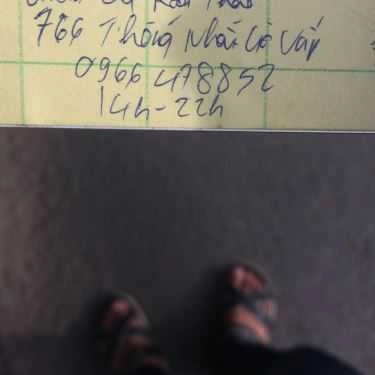 766 Thống Nhất Gò Vấp
0966 478852
14h-22h